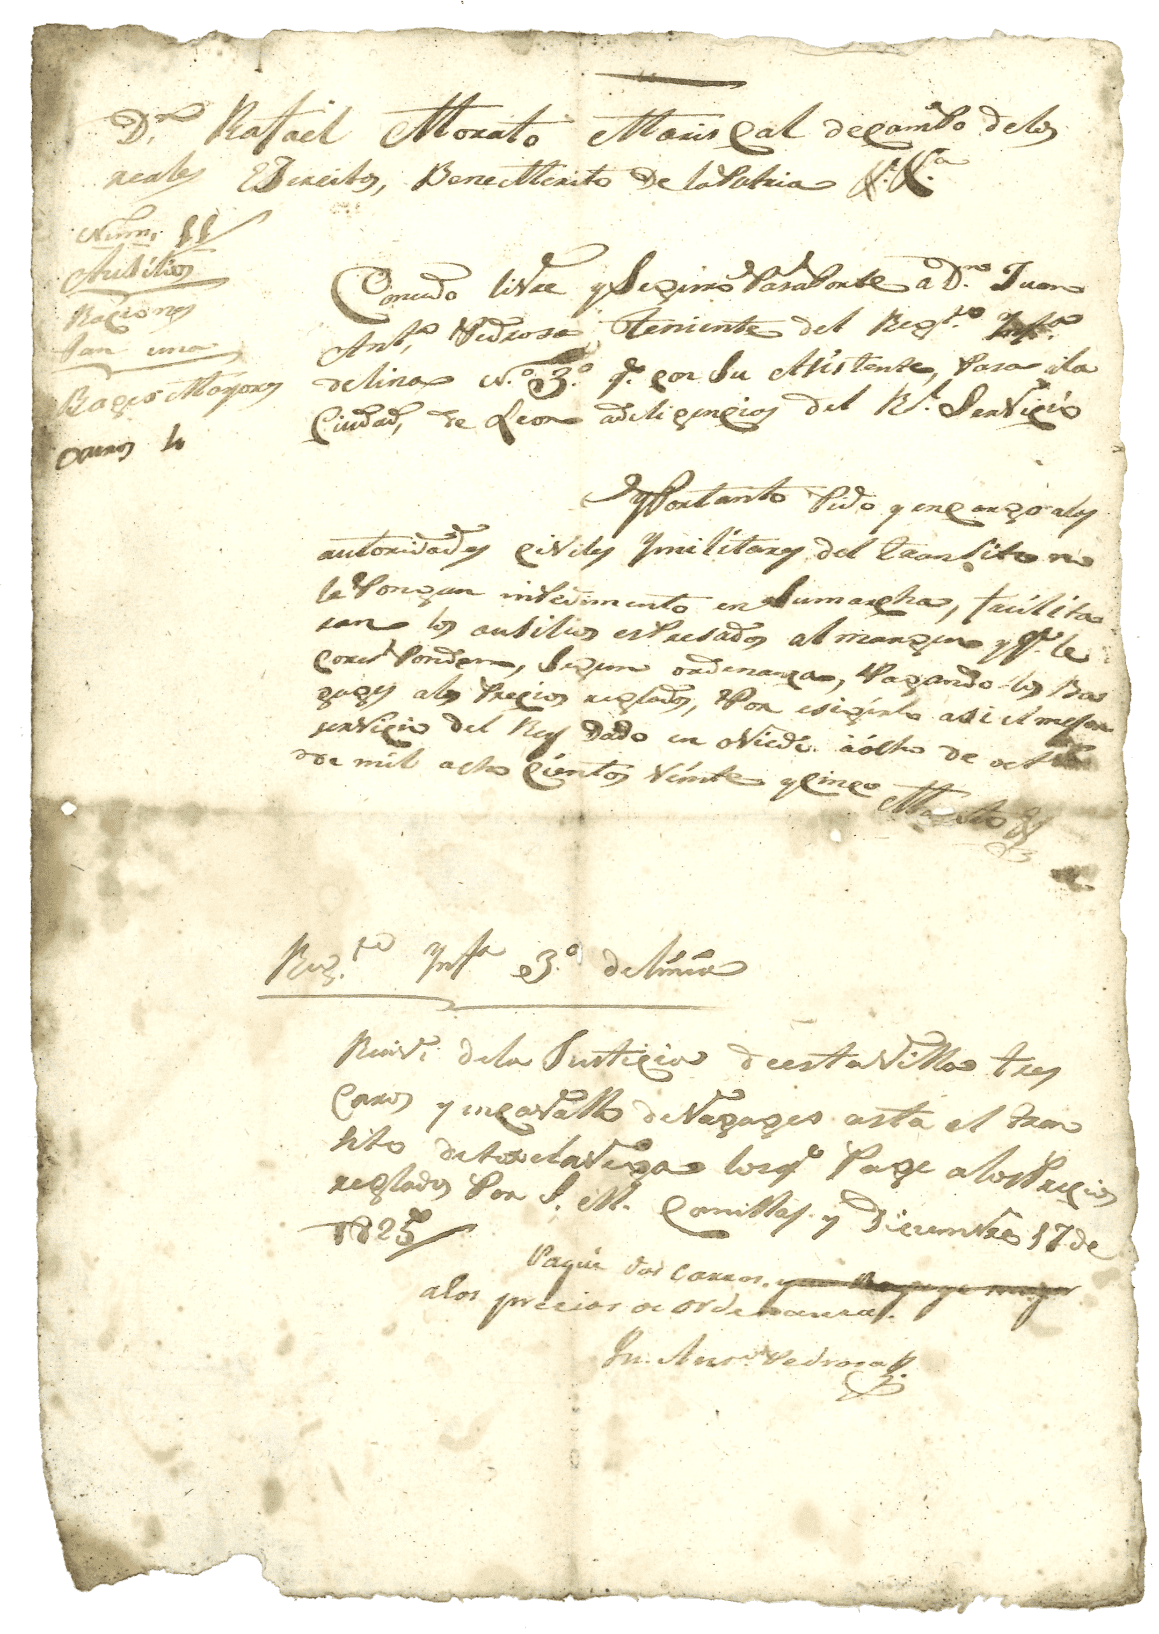 D.n Rafael Morato Mariscal de campo de los
reales Ejercitos, Benemerito de la Patria &.&.a
Num. 11
Ausilios
Raciones
Pan una
Bages Mayores
Carros 4
Concedo livre y Seguro Pasaporte a D.n Juan
Ant.o Pedrosa, Teniente del Reg.to Inf.a
de linea N.o 3.o q.e con su Asistente, Pasa a la
Ciudad, de Leon a diligencias del R.l Servicio
Y Por tanto Pido y encargo alas
autoridades civiles y militares del transito no
le Pongan inpedimento en su marcha, facilita
ran los ausilios espresados al margen y q.e le
corresponden, segun ordenanza, Pagando los Ba
gages a los Precios reglados, Por esigirlo asi el mejor
servicio del Rey Dado en oviedo a ocho de
de mil ocho cientos veinte y cinco
Morato
Reg.to Inf.a 3.o de linea
Recivi de la Justicia de esta Villa tres
Carros y un cavallo de Vagages asta el tran
sito de torrelavega los q.e Page a los Precios
reglados Por S. M. Comillas y Diciembre 17 de
1825
Pagué dos carros. y un Bagage mayor
a los precios de ordenanza.
Ju. Ant.o Pedrosa